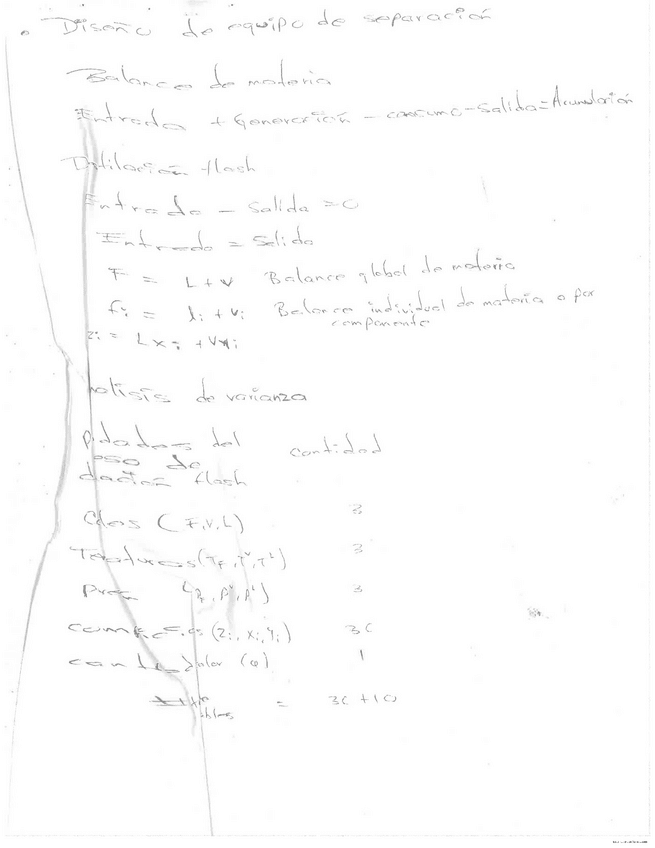 Diseño de equipo de separación
Balance de materia
Entrada + Generación - consumo - Salida = Acumulación
Detilación flash
Entrada - Salida = 0
Entrada = Salida
F = L + V Balance global de materia
fi = li + vi Balance individual de materia o por
componente
zi = Lxi + Vyi
nalisis de varianza
pidades del
eso de cantidad
dación flash
(F, V, L) 3
(TF, Tv, TL) 3
(PF, Pv, PL) 3
(zi, xi, yi) 3C
calor (Q) 1
= 3C + 10